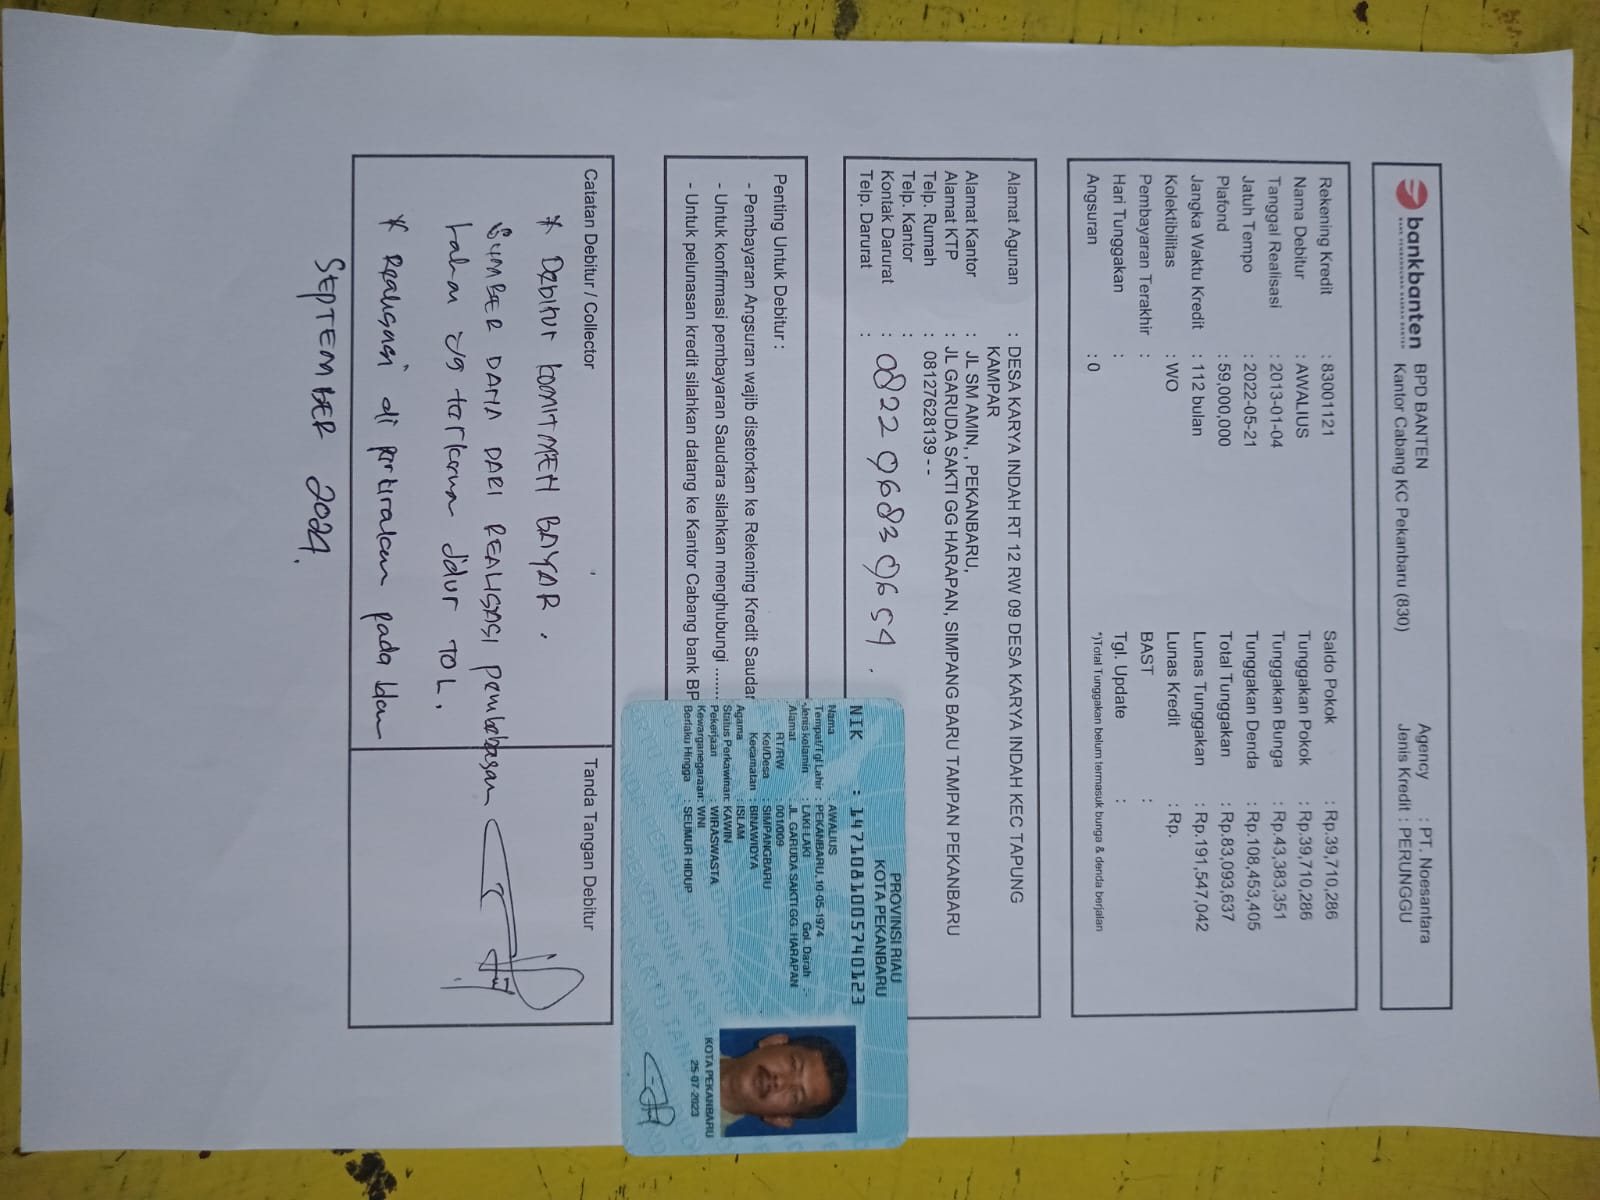 bankbanten
BPD BANTEN
Kantor Cabang KC Pekanbaru (830)
Agency : PT. Noesantara
Jenis Kredit : PERUNGGU
Rekening Kredit : 83001121
Nama Debitur : AWALIUS
Tanggal Realisasi : 2013-01-04
Jatuh Tempo : 2022-05-21
Plafond : 59,000,000
Jangka Waktu Kredit : 112 bulan
Kolektibilitas : WO
Pembayaran Terakhir :
Hari Tunggakan :
Angsuran : 0
Saldo Pokok : Rp.39,710,286
Tunggakan Pokok : Rp.39,710,286
Tunggakan Bunga : Rp.43,383,351
Tunggakan Denda : Rp.108,453,405
Total Tunggakan : Rp.83,093,637
Lunas Tunggakan : Rp.191,547,042
Lunas Kredit : Rp.
BAST :
Tgl. Update :
*)Total Tunggakan belum termasuk bunga & denda berjalan
Alamat Agunan : DESA KARYA INDAH RT 12 RW 09 DESA KARYA INDAH KEC TAPUNG
KAMPAR
Alamat Kantor : JL SM AMIN, , PEKANBARU,
Alamat KTP : JL GARUDA SAKTI GG HARAPAN, SIMPANG BARU TAMPAN PEKANBARU
Telp. Rumah : 08127628139 - -
Telp. Kantor :
Kontak Darurat : 0822 9683 9654 .
Telp. Darurat :
Penting Untuk Debitur :
- Pembayaran Angsuran wajib disetorkan ke Rekening Kredit Saudar
- Untuk konfirmasi pembayaran Saudara silahkan menghubungi ........
- Untuk pelunasan kredit silahkan datang ke Kantor Cabang bank BP
PROVINSI RIAU
KOTA PEKANBARU
NIK : 1471081005740123
Nama : AWALIUS
Tempat/Tgl Lahir : PEKANBARU, 10-05-1974
Jenis kelamin : LAKI-LAKI Gol. Darah : -
Alamat : JL. GARUDA SAKTI GG. HARAPAN
RT/RW : 001/009
Kel/Desa : SIMPANGBARU
Kecamatan : BINAWIDYA
Agama : ISLAM
Status Perkawinan: KAWIN
Pekerjaan : WIRASWASTA
Kewarganegaraan: WNI
Berlaku Hingga : SEUMUR HIDUP
KOTA PEKANBARU
25-07-2023
Catatan Debitur / Collector
Tanda Tangan Debitur
* Debitur KOMITMEN BAYAR .
SUMBER DANA DARI REALISASI pembebasan
Lahan yg terkena jalur TOL.
* Realisasi di perkirakan pada bln
SEPTEMBER 2024.